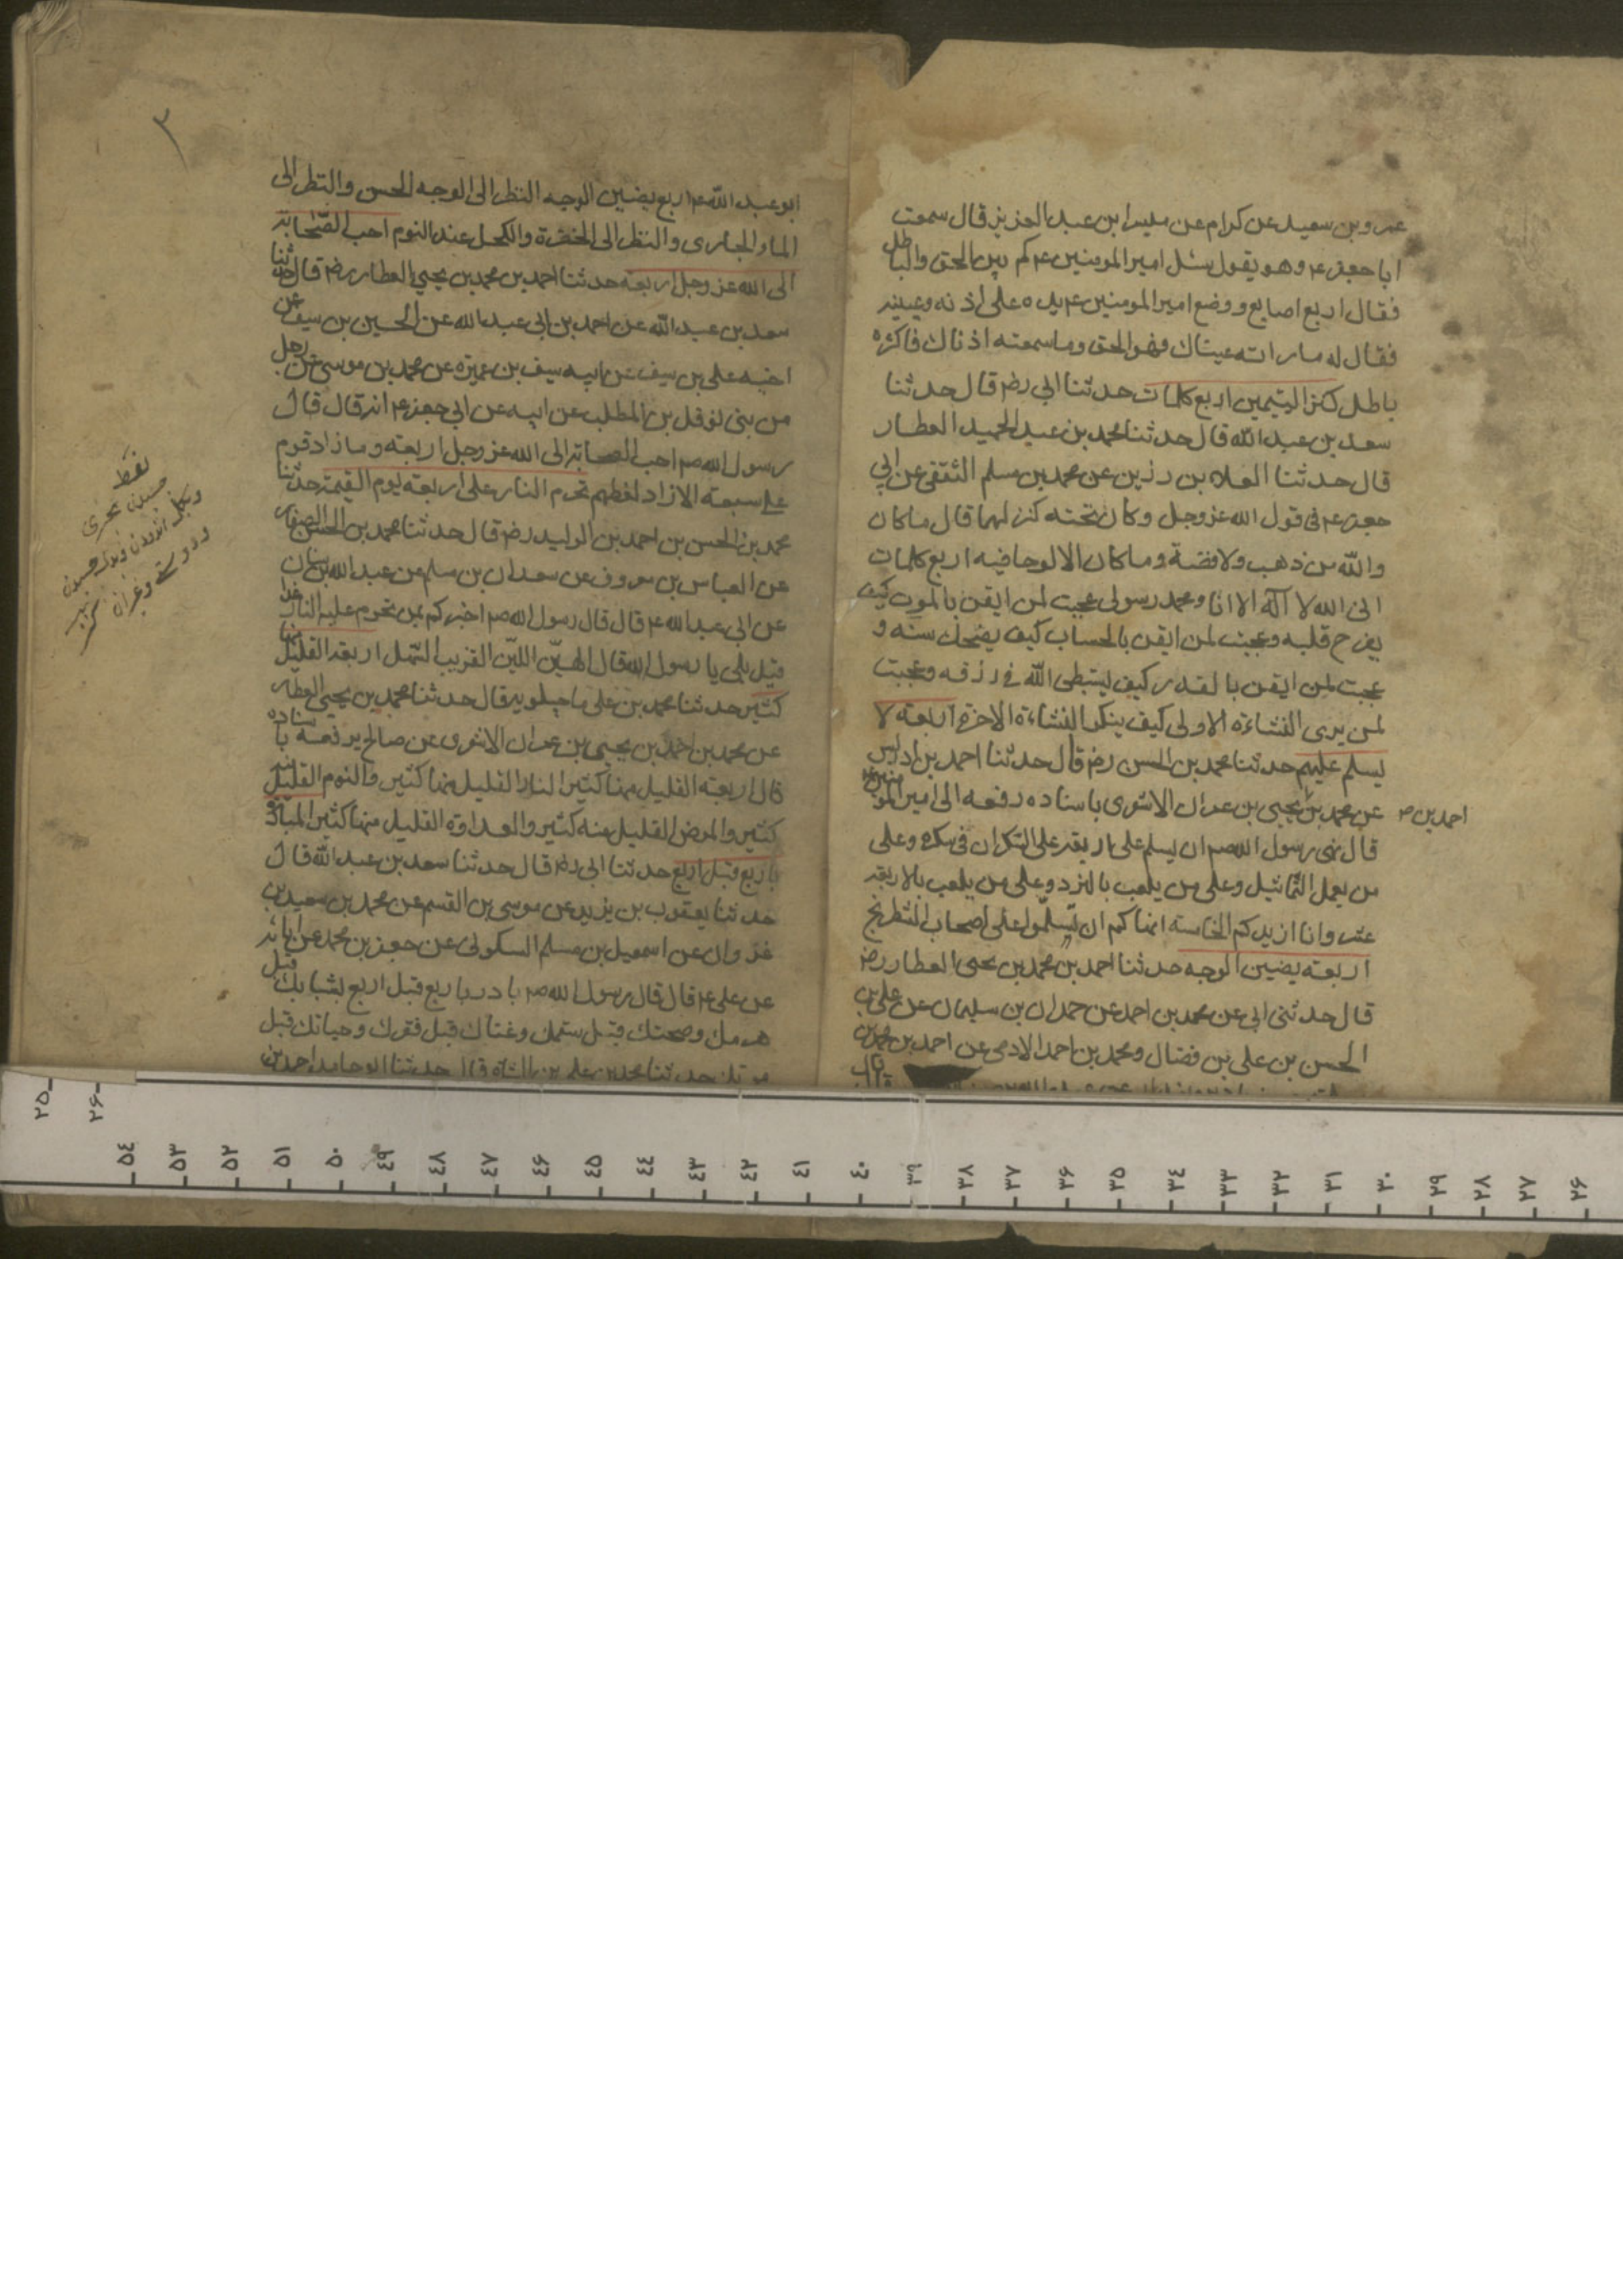 عمرو بن سعيد عن كرام عن ميسر ابن عبد العزيز قال سمعت
ابا جعفر ع وهو يقول سئل امير المومنين ع كم بين الحق والباطل
فقال اربع اصابع ووضع امير المومنين ع يده على اذنه وعينيه
فقال له ما راته عيناك فهو الحق وما سمعته اذناك فاكثره
باطل كنز اليتيمين اربع كلمات حدثنا ابي رضه قال حدثنا
سعد بن عبد الله قال حدثنا محمد بن عبد الحميد العطار
قال حدثنا العلاء بن رزين عن محمد بن مسلم الثقفي عن ابي
جعفر ع في قول الله عز وجل وكان تحته كنز لهما قال ما كان
والله من ذهب ولا فضة وما كان الا لوحا فيه اربع كلمات
اني الله لا اله الا انا ومحمد رسولي عجبت لمن ايقن بالموت كيف
يفرح قلبه وعجبت لمن ايقن بالحساب كيف يضحك سنه و
عجبت لمن ايقن بالقدر كيف يستبطى الله في رزقه وعجبت
لمن يرى النشاءة الاولى كيف ينكر النشاءة الاخرة اربعة لا
يسلم عليهم حدثنا محمد بن الحسن رضه قال حدثنا احمد بن ادريس
عن محمد بن يحيى بن عمران الاشعرى باسناده رفعه الى امير المومنين ع
احمد بن صح
قال نهى رسول الله صم ان يسلم على اربعة على السكران في سكره وعلى
من يعمل التماثيل وعلى من يلعب بالنرد وعلى من يلعب بالاربعة
عشر وانا ازيدكم الخامسة انهاكم ان تسلموا على اصحاب الشطرنج
اربعة يضيئن الوجه حدثنا احمد بن محمد بن يحيى العطار رضه
قال حدثنى ابى عن محمد بن احمد عن حمدان بن سليمان عن على بن
الحسن بن على بن فضال ومحمد بن احمد الادمى عن احمد بن محمد بن
قال
٣
ابو عبد الله ع اربع يضيئن الوجه النظر الى الوجه الحسن والنظر الى
الماء الجارى والنظر الى الخضرة والكحل عند النوم احب الصحابة
الى الله عز وجل اربعة حدثنا احمد بن محمد بن يحيى العطار رضه قال حدثنا
سعد بن عبد الله عن احمد بن ابى عبد الله عن الحسين بن سيف عن
اخيه على بن سيف عن ابيه سيف بن عميرة عن محمد بن موسى عن رجل
من بنى نوفل بن المطلب عن ابيه عن ابي جعفر ع انه قال قال
رسول الله صم احب الصحابة الى الله عز وجل اربعة وما زاد قوم
على سبعة الا زاد لغطهم تحرم النار على اربعة يوم القيمة حدثنا
محمد بن الحسن بن احمد بن الوليد رضه قال حدثنا محمد بن الحسن الصفار
عن العباس بن معروف عن سعدان بن مسلم عن عبد الله بن سنان
عن ابي عبد الله ع قال قال رسول الله صم اخبركم بمن تحرم عليه النار غدا
قيل بلى يا رسول الله قال الهين اللين القريب السهل اربعة القليل منها
كثير حدثنا محمد بن على ماجيلويه قال حدثنا محمد بن يحيى العطار
عن محمد بن احمد بن يحيى بن عمران الاشعرى عن صالح يرفعه باسناده
قال اربعة القليل منها كثير النار القليل منها كثير والنوم القليل منه
كثير والمرض القليل منه كثير والعداوة القليل منها كثير المبادرة
باربع قبل اربع حدثنا ابى رضه قال حدثنا سعد بن عبد الله قال
حدثنا يعقوب بن يزيد عن موسى بن القسم عن محمد بن سعيد بن
غزوان عن اسمعيل بن مسلم السكونى عن جعفر بن محمد عن ابائه
عن على ع قال قال رسول الله صم بادر باربع قبل اربع بشبابك قبل
هرمك وصحتك قبل سقمك وغناك قبل فقرك وحياتك قبل
موتك حدثنا محمد بن على بن الشاه قال حدثنا ابو حامد احمد بن
فقط
٢٥
٢۶
٥٤ ٥٣ ٥٢ ٥١ ٥٠ ٤٩ ٤٨ ٤٧ ٤۶ ٤٥ ٤٤ ٤٣ ٤٢ ٤١ ٤٠ ٣٩ ٣٨ ٣٧ ٣۶ ٣٥ ٣٤ ٣٣ ٣٢ ٣١ ٣٠ ٢٩ ٢٨ ٢٧ ٢۶